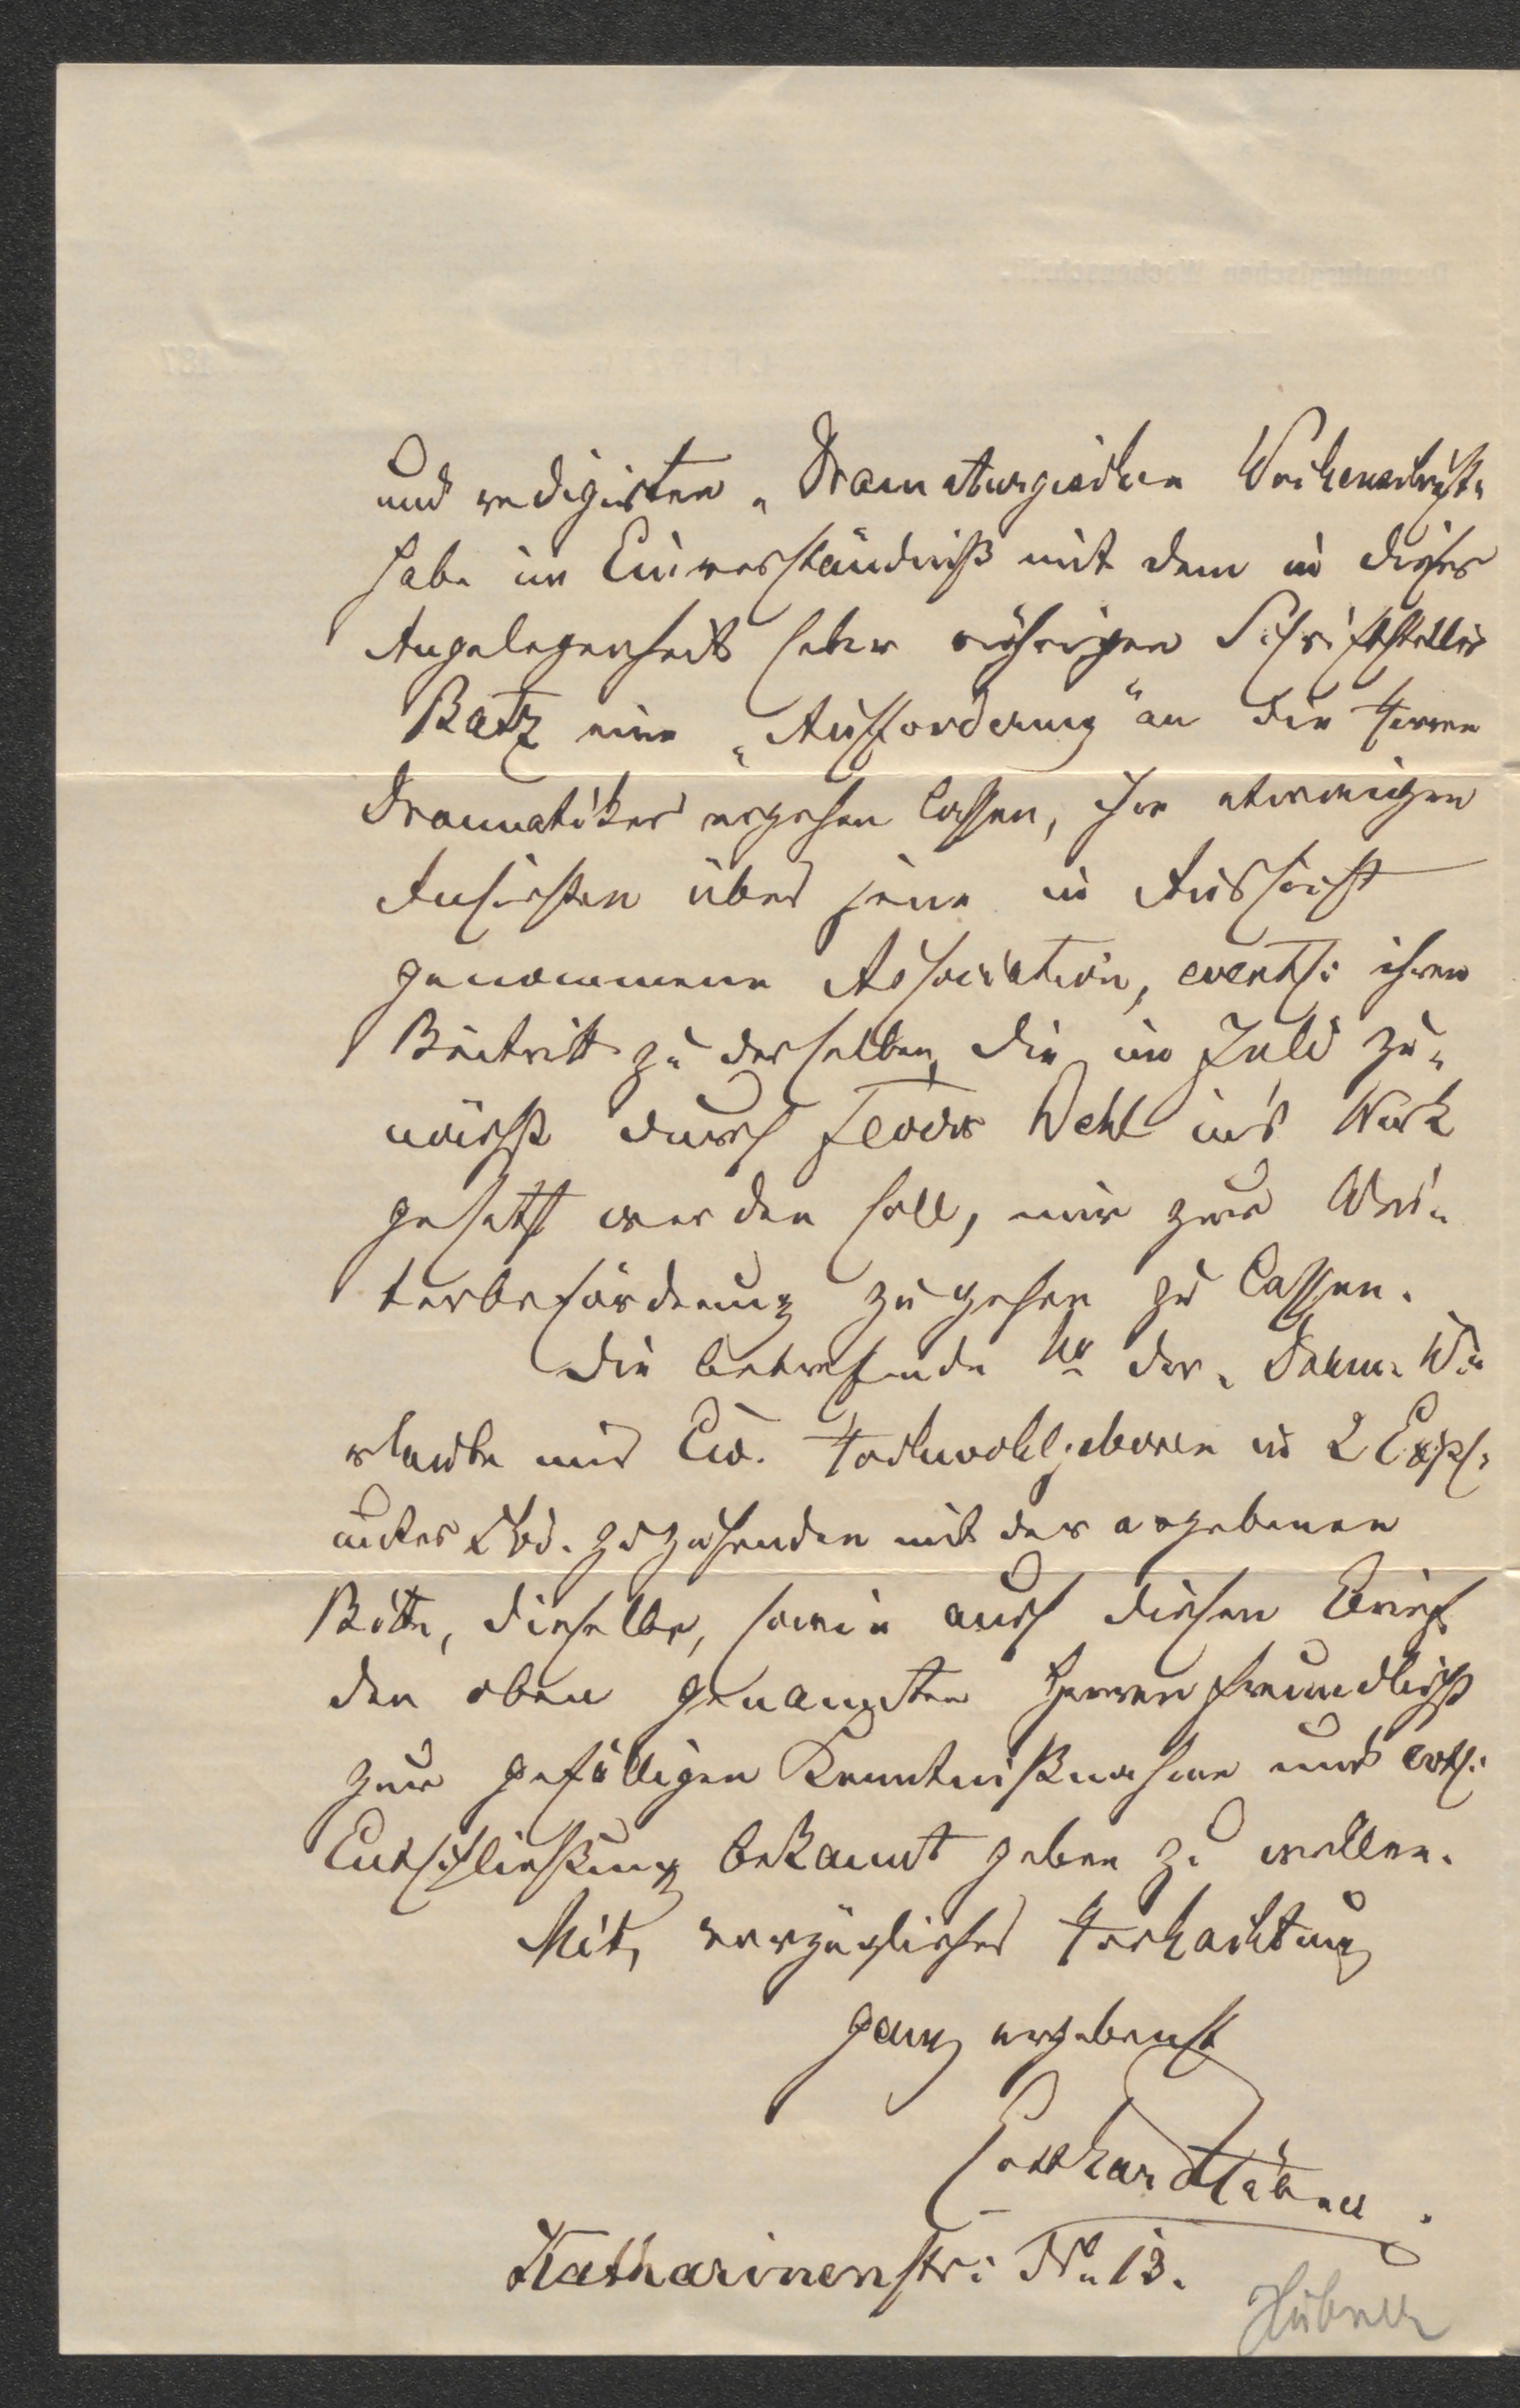 und redigirten „Dramaturgischen Wochenschrift"
habe im Einverständniß mit dem in dieser
Angelegenheit sehr rührigen Schriftsteller
Batz eine „Aufforderung" an die Herren
Dramatiker ergehen lassen, ihre etwaigen
Ansichten über jene in Aussicht
genommene Association, eventl: ihren
Beitritt zu derselben, die im Juli zu-
nächst durch Feodor Wehl in's Werk
gesetzt werden soll, mir zur Wei-
terbeförderung zugehen zu lassen.
Die betreffende No der „Dram. W."
erlaube mir Ew. Hochwohlgeboren in 2 Expl:
unter Xbd. zuzusenden mit der ergebenen
Bitte, dieselbe, sowie auch diesen Brief
den oben genannten Herren freundlichst
zur gefälligen Kenntnißnahme und evtl:
Entschließung bekannt geben zu wollen.
Mit vorzüglicher Hochachtung
ganz ergebenst
Lotthar Hübner.
Katharinenstr: No 13.
Hübner